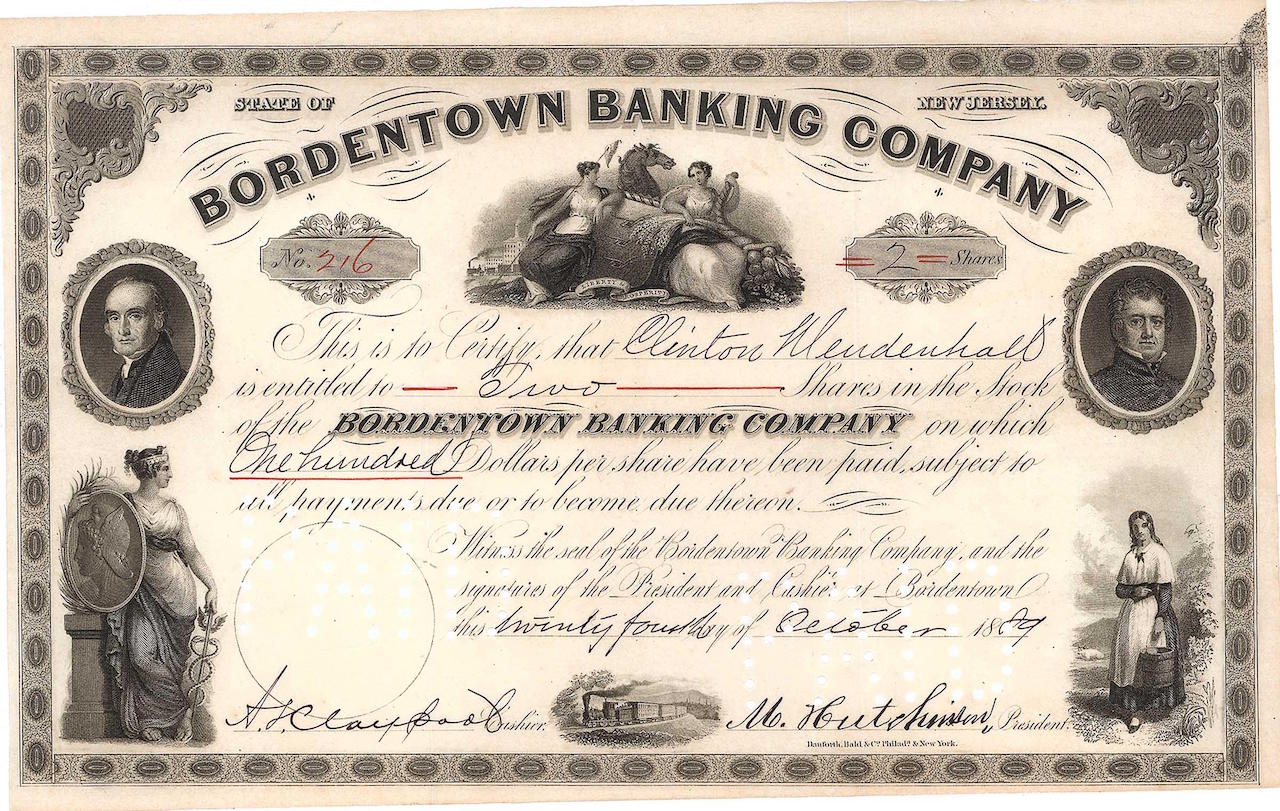 STATE OF
NEW JERSEY.
BORDENTOWN BANKING COMPANY
No. 216
= 2 = Shares
LIBERTY & PROSPERITY
This is to Certify, that Clinton Mendenhall
is entitled to — Two — Shares in the Stock
of the BORDENTOWN BANKING COMPANY on which
One hundred Dollars per share have been paid, subject to
all payments due or to become due thereon.
Witness the seal of the Bordentown Banking Company, and the
signatures of the President and Cashier at Bordentown
this twenty fourth day of October 1889
A. S. Claypool Cashier.
M. Hutchinson, President.
Danforth, Bald & Co. Philada. & New York.